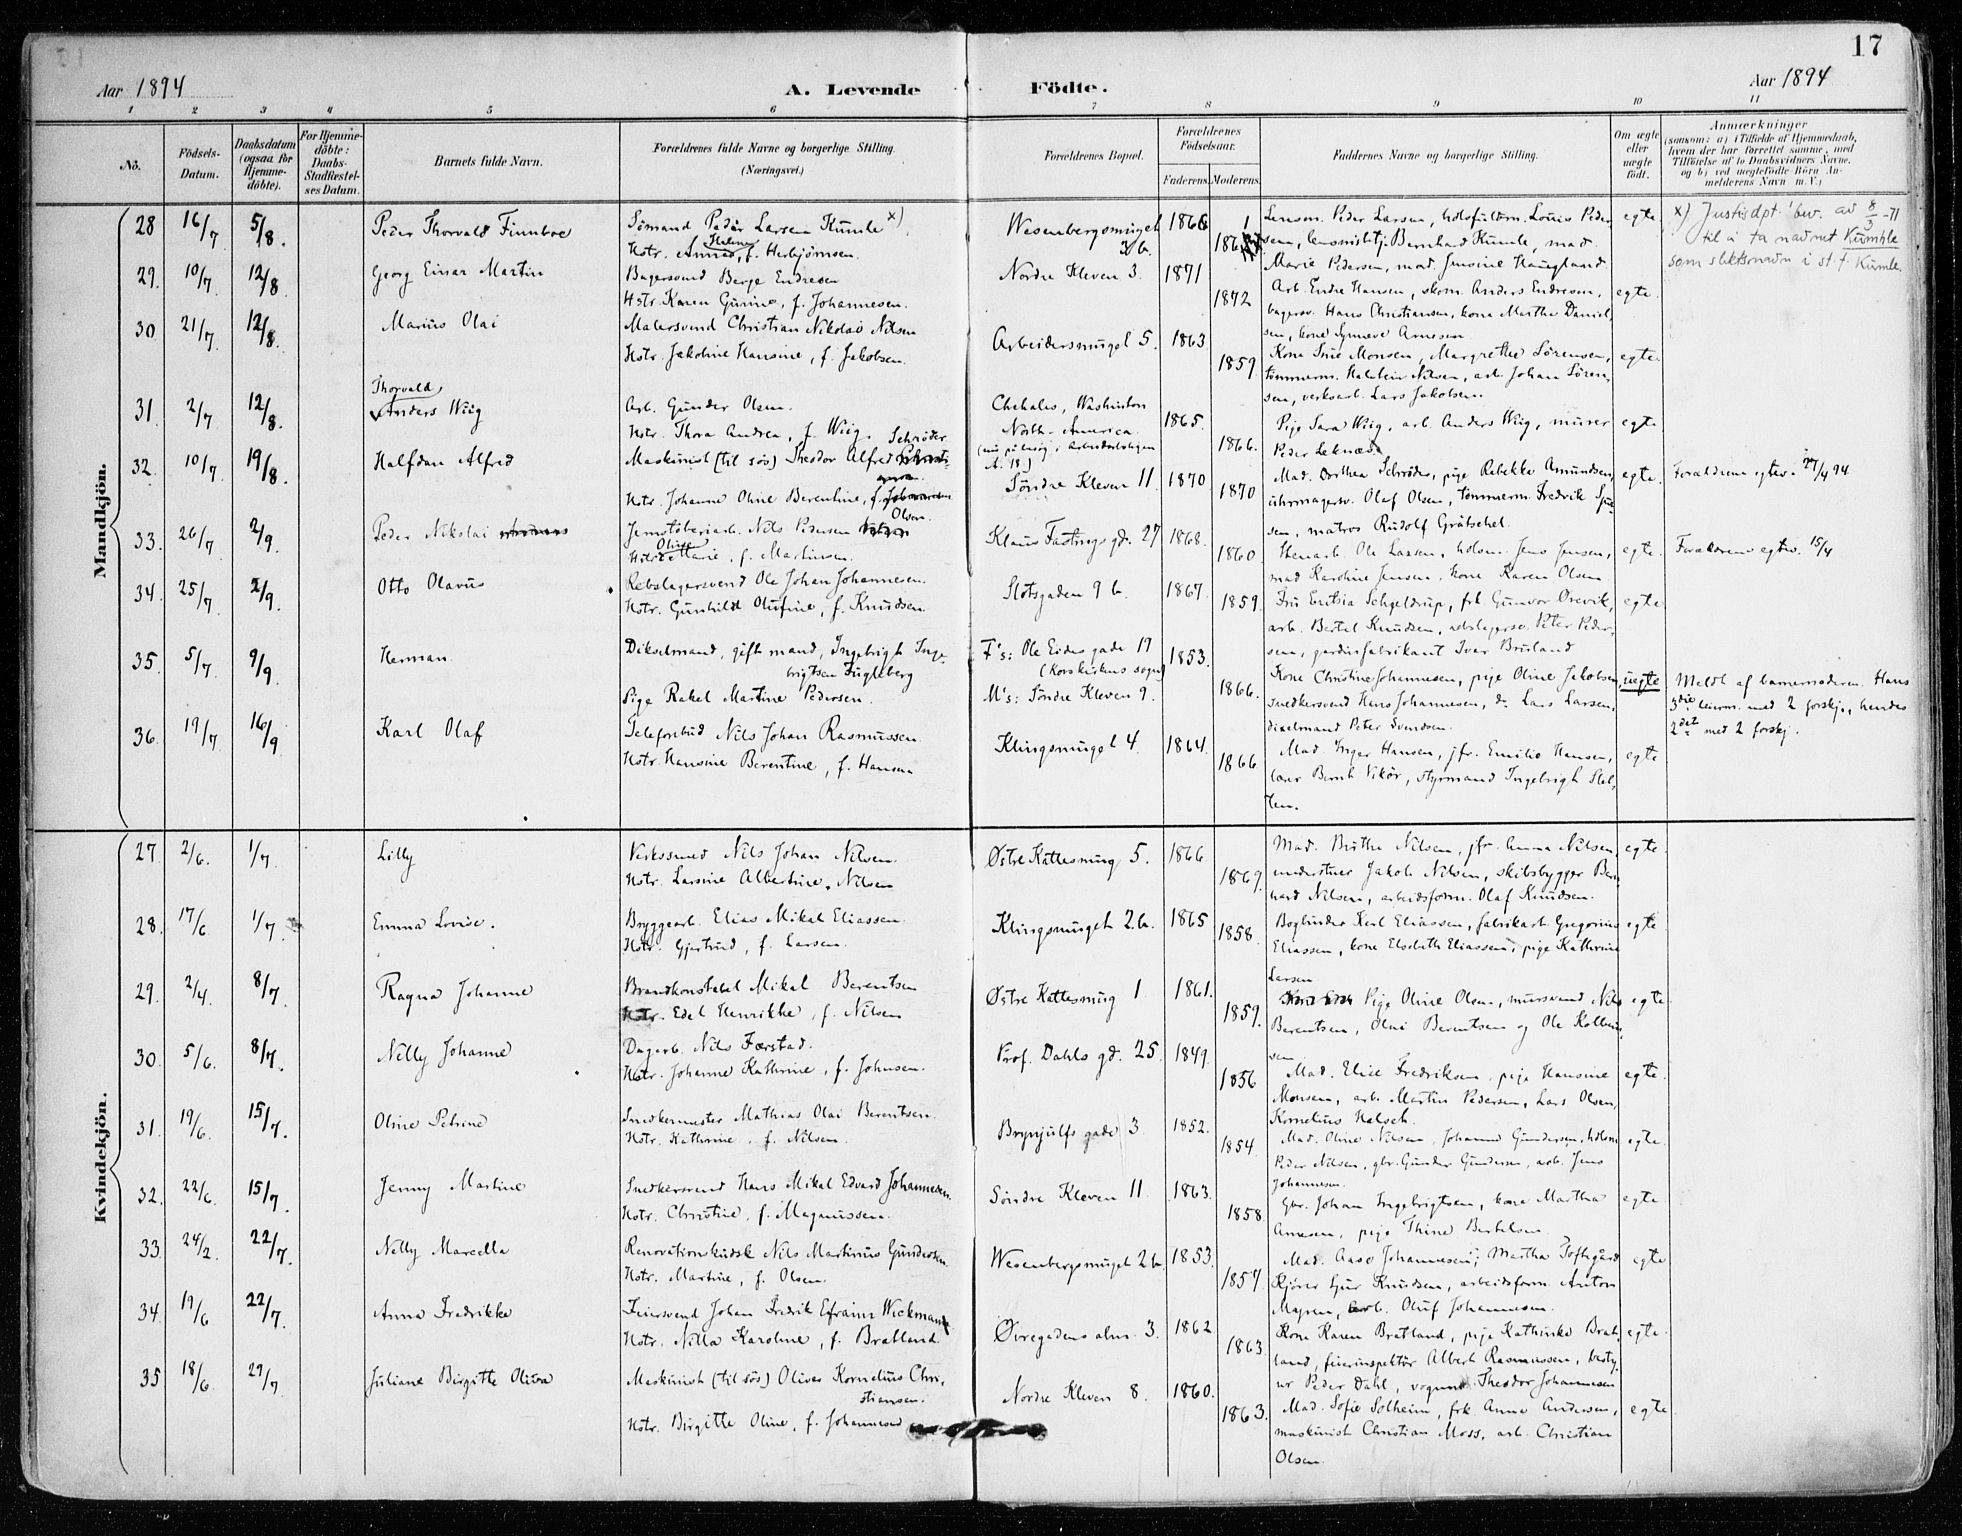 17
Aar 1894 A. Levende Födte. Aar 1894
1 2 3 4 5 6 7 8 9 10 11
No. Födsels-Datum. Daabsdatum (ogsaa for Hjemme-döbte). For Hjemme-döbte: Daabs-Stadfæstel-ses Datum. Barnets fulde Navn. Forældrenes fulde Navne og borgerlige Stilling. (Næringsvei.) Forældrenes Bopæl. Forældrenes Födselsaar. Faderens. Moderens. Faddernes Navne og borgerlige Stilling. Om ægte eller uægte födt. Anmærkninger (saasom: a) i Tilfælde af Hjemmedaab, hvem der har forrettet samme, med Tilföielse af to Daabsvidners Navne, og b) ved uægtefödte Börn An-melderens Navn m. V.)
Mandkjön.
28 16/7 5/8. Peder Thorvald Finnboe Sömand Peder Larsen Kumle x) Wesenbergsmuget 1866 egte x) Justisdpt. bev. av 8/3-71
Hstr. f. Herbjørnsen. til å ta navnet Kumhle
Marie Pedersen, mad Jensine Haugland. som slektsnavn i st. f. Kumle.
29. 10/7 12/8 Georg Einar Martin Bagersvend Berge Endresen Nordre Kleven 3. 1871
Hstr. Karen Gurine, f. Johannesen. 1872 Arb. Endre Hansen, skom. Anders Endresen, egte.
bagersv. Hans Christiansen, kona Martha Daniel-
sen, kone Synneve Arnesen.
30 21/7 12/8. Marius Olai Malersvend Christian Nikolai Nilsen Arbeidersmuget 5. 1863
Hstr. Jakobine Hansine, f. Jakobsen. 1859. Monsen, Margrethe Sörensen, egte.
tömmerm. Halstein Nilsen, arb. Johan Sören-
sen, verksarb. Lars Jakobsen.
31. 2/7 12/8. Thorvald Anders Wiig Arb. Gunder Olsen. Chehales, Washinton 1865.
North-America.
Hstr. Thora Andrea, f. Wiig. 1866. Pige Sara Wiig, arb. Anders Wiig, murer egte
Peder
32. 10/7 19/8. Halfdan Alfred Maskinist (til sös) Theodor Alfred Schröder Söndre Kleven 11 1870
Hstr. Johanne Oline Berentine, f. 1870 Mad. Dorthea Schröder, pige Rebekke Amundsen, egte. Forældrene egtev. 27/4 94
uhrmagersv. Olaf Olsen, tömmerm. Fredrik
sen, matros Rudolf Grätschel.
33. 26/7 2/9. Peder Nikolai Nils Pedersen Olsen. Klaus Fastings gd. 27 1868.
Oline Marie, f. Martinsen. 1860 Stenarb. Ole Larsen, Jens Jensen, egte. Forældrene egtev. 15/4
mad Karoline Jensen, kone Karen Olsen
34. 25/7 2/9. Otto Olavus Rebslagersvend Ole Johan Johannesen. Slotsgaden 9 b. 1867.
Hstr. Gunhild Olufine, f. Knudsen. 1859. Fru Schjeldrup, frk Gunvor egte
arb. Bertel Knudsen, rebslagersv. Peter Peder-
sen, gardinfabrikant Ivar Brusland
35. 5/7 9/9. Herman. Dikselmand, gift mand, Ingebrigt Inge-brigtsen Fugleberg F's: Ole Eides gade 19 (Korskirkens sogn) 1853.
Pige Rakel Martine Pedersen. M's: Söndre Kleven 9. 1866. Kone Christine Johannesen, pige Oline Jakobsen, uegte Meldt af barnemoderen. Hans
snedkersvend Hans Johannesen, do Lars Larsen, 3die leierm. med 2 forskj., hendes
dixelmand Peter Svendsen. 2det med 2 forskj.
36. 19/7 16/9 Karl Olaf Telefonbud Nils Johan Rasmussen. Klingsmuget 4. 1864.
Hstr. Hansine Berentine, f. Hansen 1866. Mad. Inger Hansen, jfr. Emilie Hansen, egte
lærer Bernh Vikör, styrmand Ingebrigt
Kvindekjön.
27. 2/6. 1/7. Lilly Verkssmed Nils Johan Nilsen. Østre Kattesmug 5. 1866 Mad. Brithe Nilsen, jfr. Anna Nilsen, egte.
Hstr. Larsine Albertine, Nilsen 1869. Jakob Nilsen, skibsbygger Ber-
hard Nilsen, arbeidsform. Olaf Knudsen.
28. 17/6 1/7. Emma Lovise. Bryggearb. Elias Mikal Eliassen. Klingsmuget 2b. 1865 Bogbinder Karl Eliassen, fabrikarb. Gregorius egte.
Hstr. Gjertrud, f. Larsen. 1858. Eliassen, kone Elsebeth Eliassen, pige Kathrine
Larsen
29. 2/4. 8/7. Ragna Johanne Brandkonstabel Mikal Berentsen Østre Kattesmug 1 1861. Pige Oline Olsen, mursvend Nils egte.
Hstr. Edel Henrikke, f. Nilsen 1859. Berentsen, Olai Berentsen og Ole Kolbein-
sen
30. 5/6. 8/7. Nelly Johanne Dagarb. Nils Færstad. Prof. Dahls gd. 25. 1849.
Hstr. Johanne Kathrine, f. Johnsen. 1856 Mad. Elise Fredriksen, pige Hansine egte.
Monsen, arb. Martin Pedersen, Lars Olsen,
Kornelius
31. 19/6. 15/7. Oline Petrine Snedkermester Mathias Olai Berentsen. Brynjulfs gade 3. 1852.
Hstr. Kathrine, f. Nilsen. 1854. Mad. Oline Nilsen, Johanne Gundersen, egte.
Peder Nilsen, gbr. Gunder Gundersen, arb. Jens
Johannesen.
32. 22/6 15/7 Jenny Martine Snedkersvend Hans Mikal Edvard Johannesen. Söndre Kleven 11. 1863.
Hstr. Christine, f. Magnussen. 1858 Gbr. Johan Ingebrigtsen, kone Martha egte.
Arnesen, pige Thine Bertelsen
33. 24/2. 22/7. Nelly Marcella Renovationskudsk Nils Martinus Gundersen Wesenbergsmuget 2b. 1853. Mad. Aase Johannesen, Martha Toftegård egte
Hstr. Martine, f. Olsen. 1857. Kjörer Gjur Knudsen, arbeidsform. Anton
Myren, arb. Oluf Johannesen.
34. 19/6 22/7. Anna Fredrikke Feiersvend Johan Fredrik Efraim Wickmann Øvregadens alm. 3. 1862
Hstr. Nilla Karoline, f. Bratland. 1863. Kone Karen Bratland, pige Kathinka Brat- egte.
land, feierinspektör Albert Rasmussen, besty-
rer Peder Dahl, vognm. Theodor Johannesen
35 18/6. 29/7 Juliane Birgitte Oliva Maskinist (til sös) Oliver Kornelius Chri-stiansen. Nordre Kleven 8. 1860.
Hstr. Birgitte Oline, f. Johannesen 1863. Mad. Sofie Solheim, frk. Anna Andersen, egte
maskinist Christian Moss, arb. Christian
Olsen.